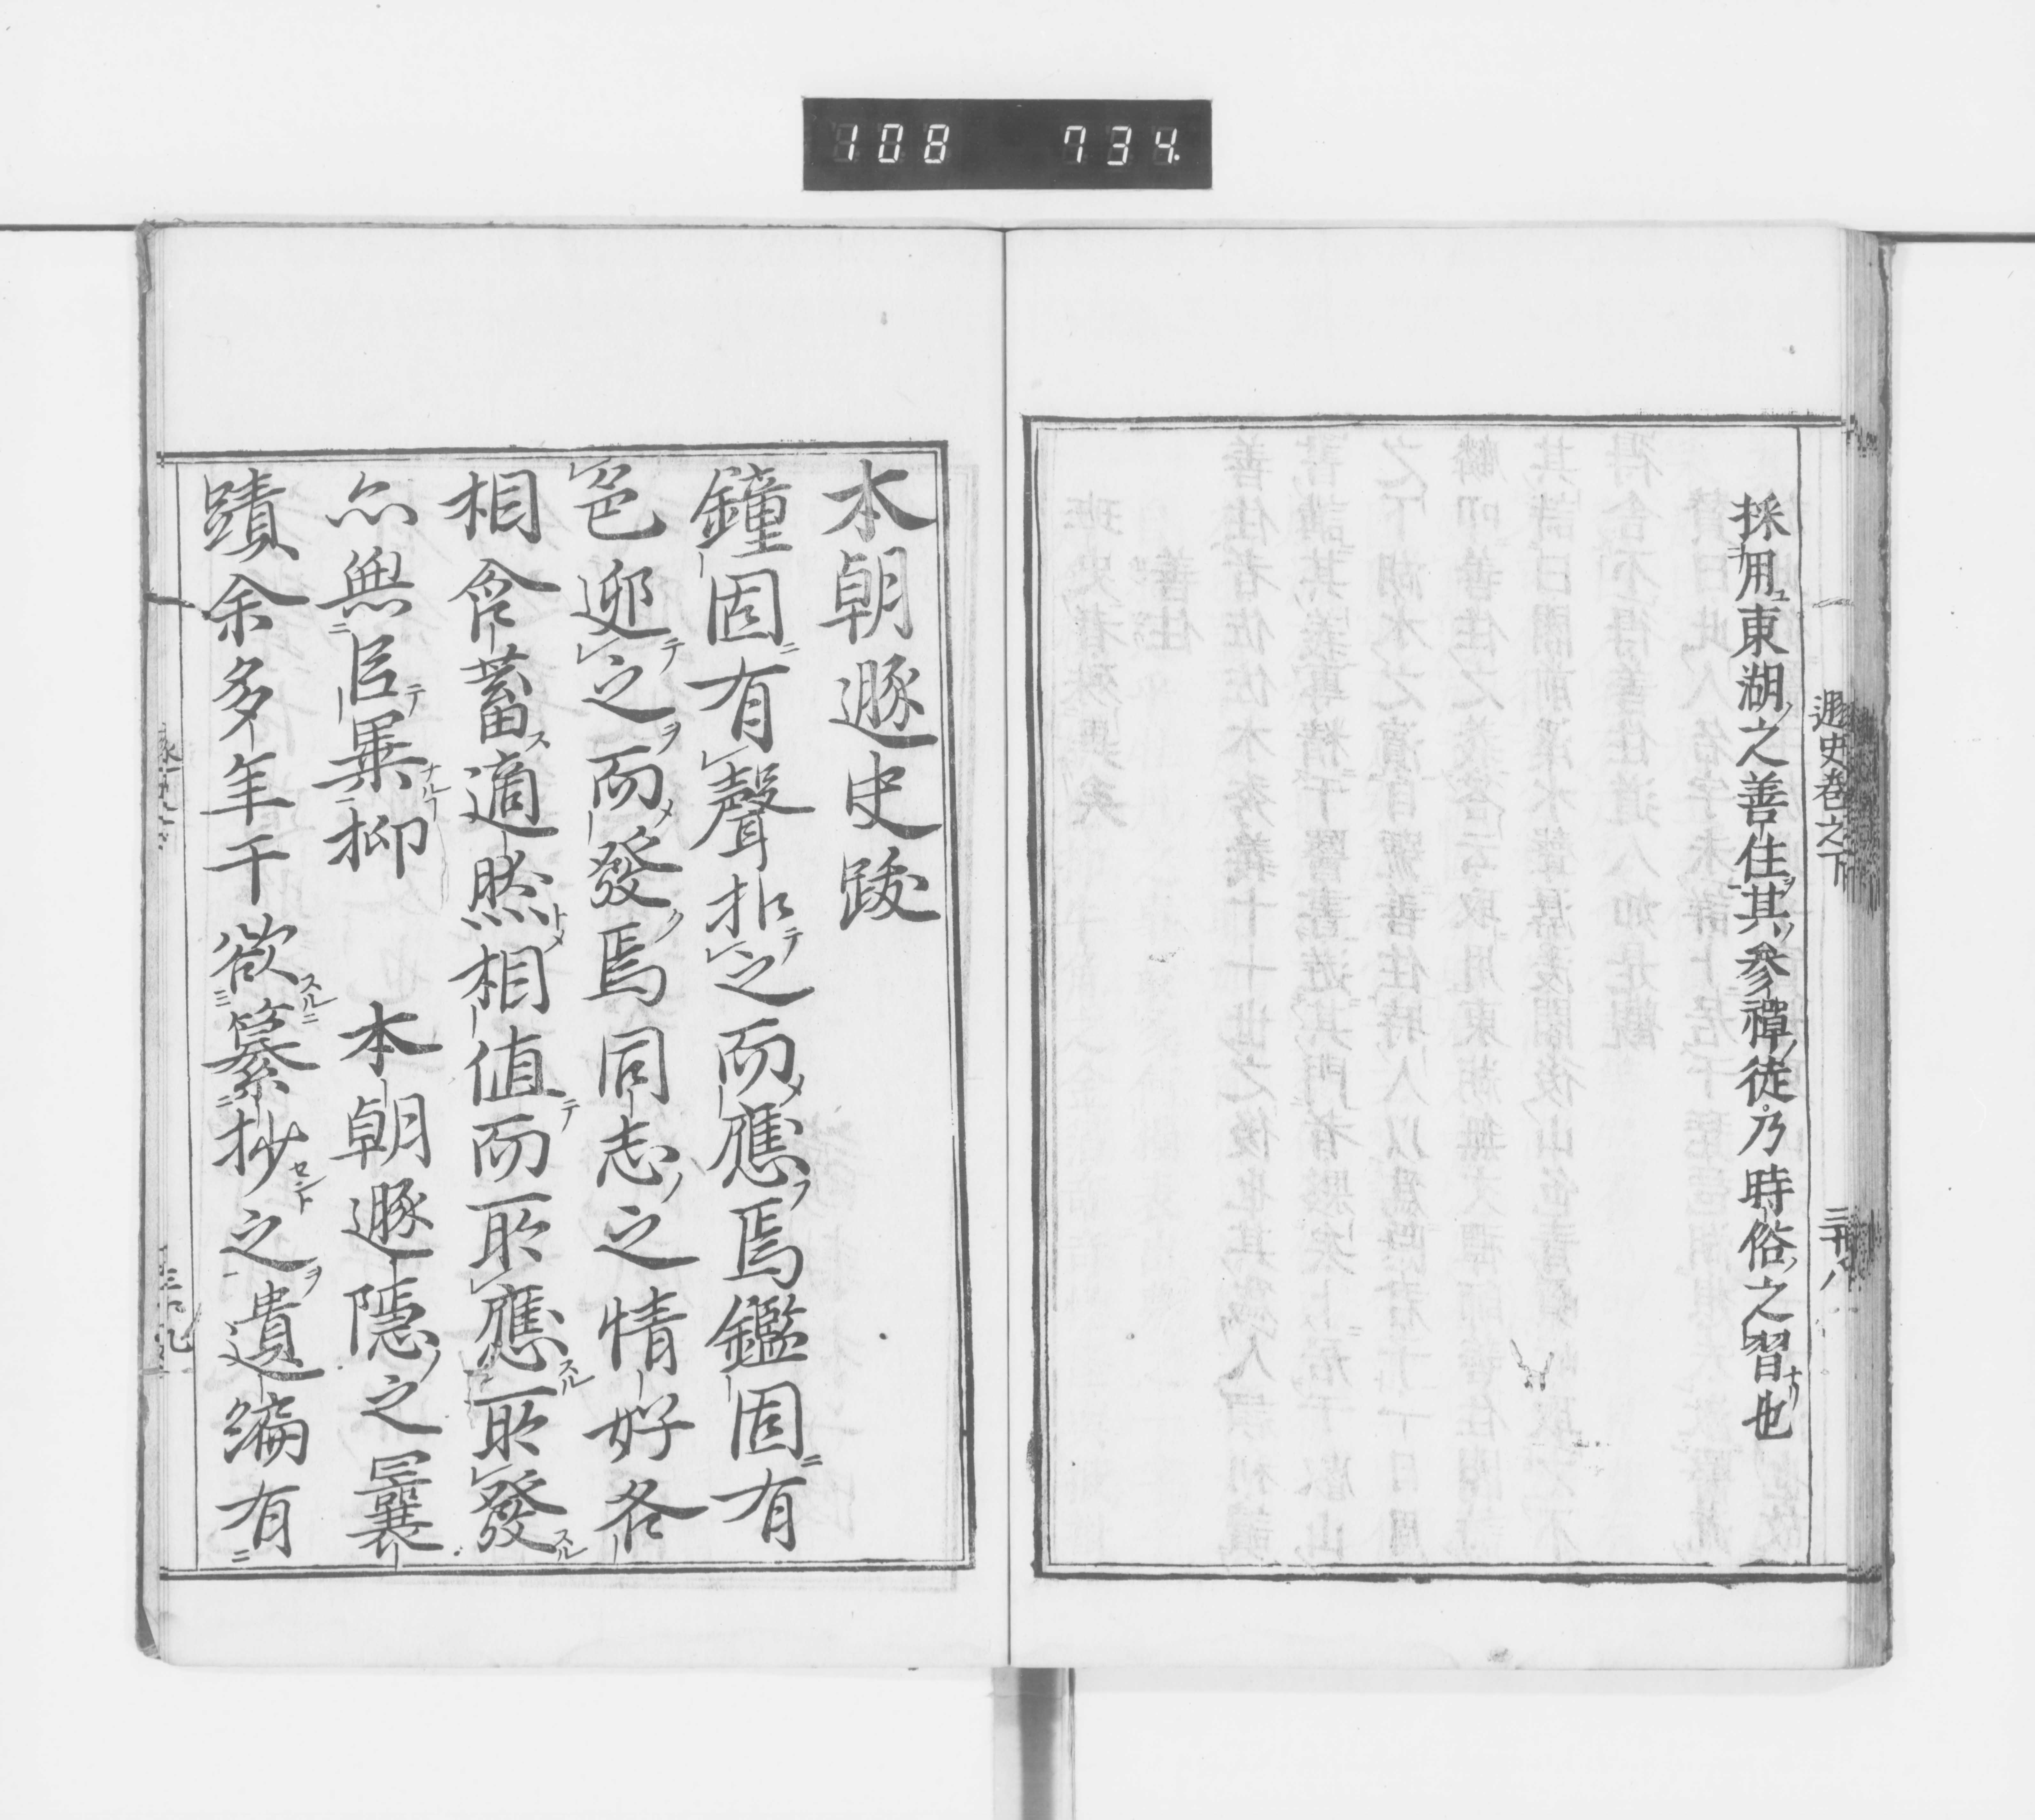 108 734
遯史卷之下
三十八
採用東湖之善住其參禪徒乃時俗之習也
本朝遯史跋
鐘固有聲扣之而應焉鑑固有
色迎之而發焉同志之情好各
相含蓄適然相值而所應所發
亦無以異抑 本朝遯隱之曩
蹟余多年于欲纂抄之遺編有